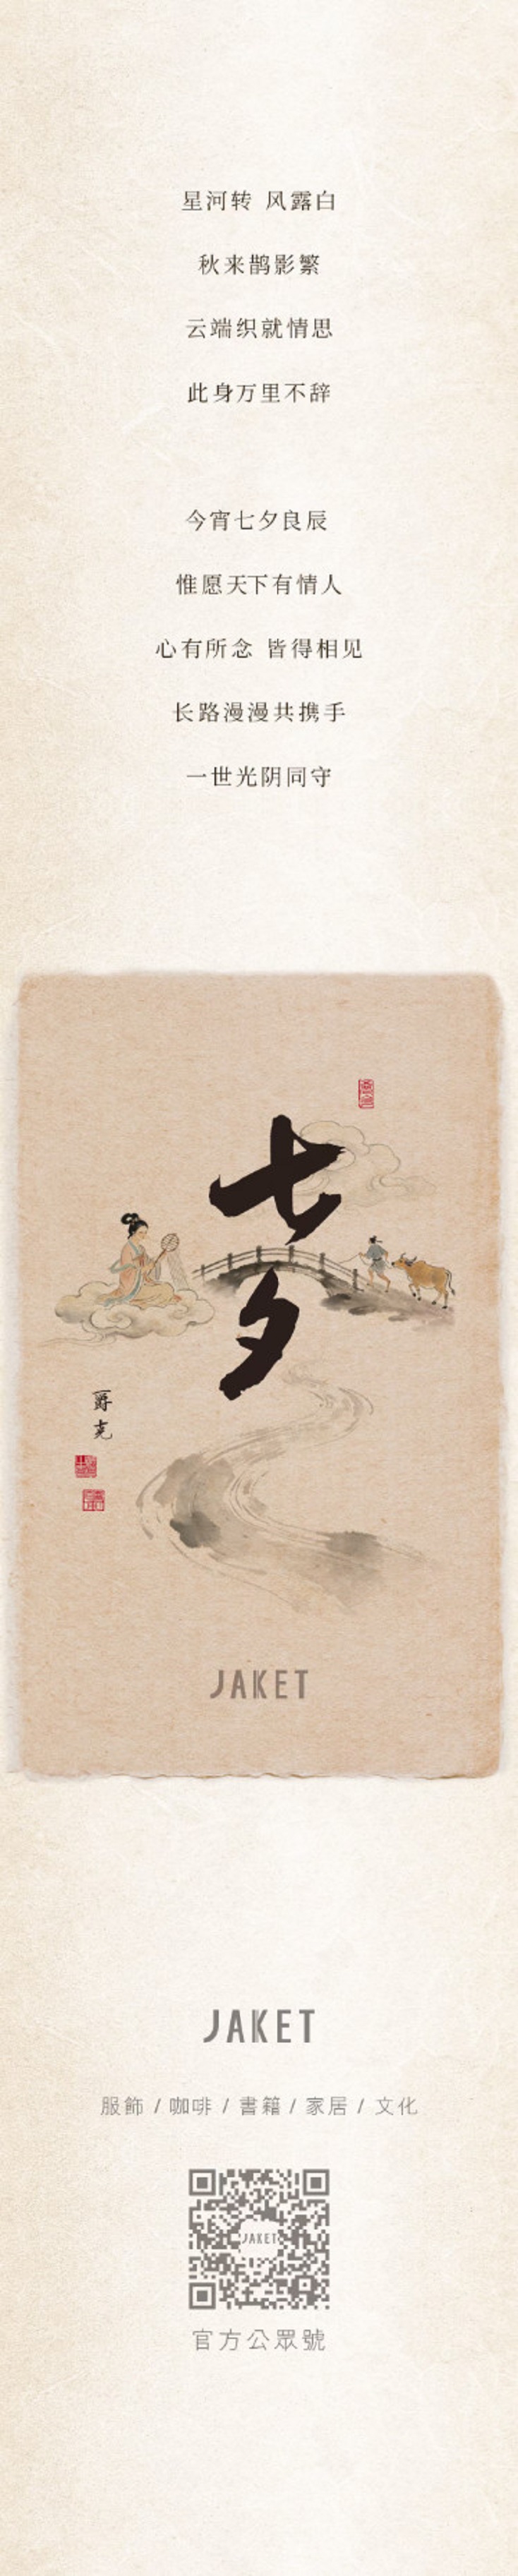 星河转 风露白
秋来鹊影繁
云端织就情思
此身万里不辞
今宵七夕良辰
惟愿天下有情人
心有所念 皆得相见
长路漫漫共携手
一世光阴同守
七夕
爵克
JAKET
JAKET
服飾 / 咖啡 / 書籍 / 家居 / 文化
JAKET
官方公眾號